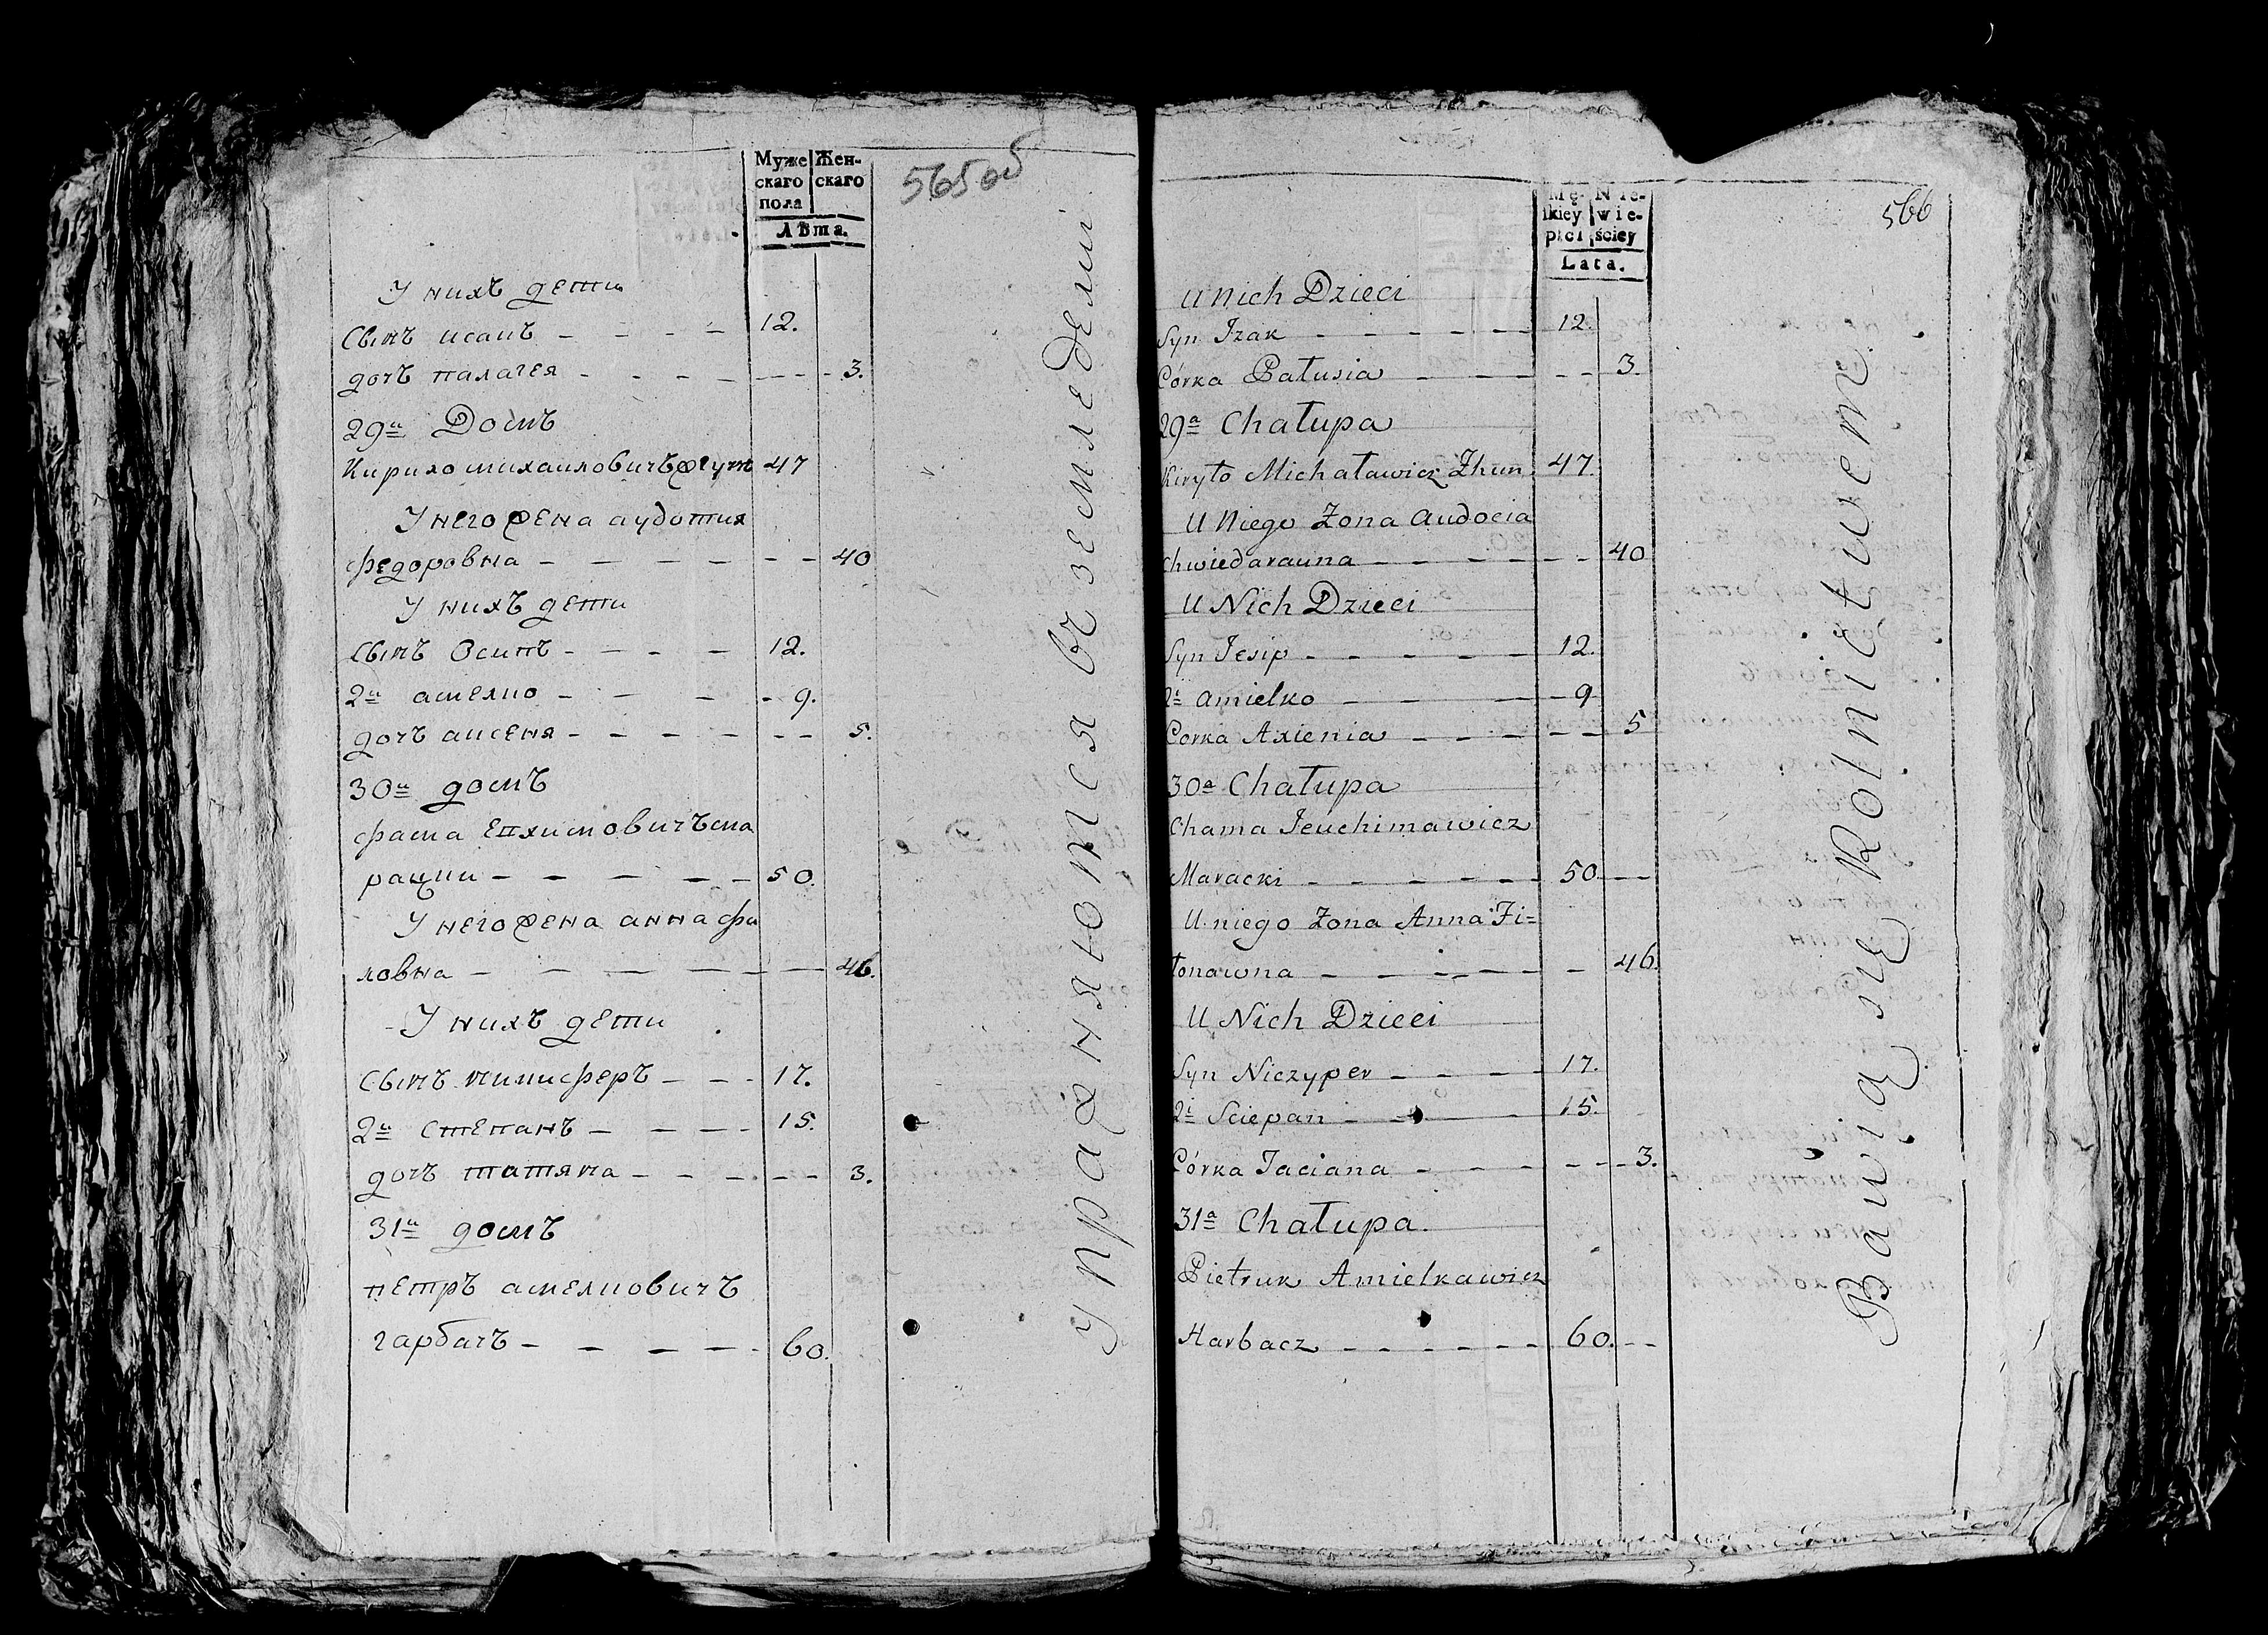 565 об
Муже Жен-
скаго скаго
пола
Лѣта.
У нихъ дети
Сынъ исакъ 12.
дочь палагея 3.
29й Домъ
Кирило михаиловичъ жгунъ 47
У него жена аудотия
федоровна 40
У нихъ дети
Сынъ Осипъ 12.
2й амелко 9.
дочь аксеня 5.
30й домъ
фама епхимовичъ ма
рацки 50.
У него жена анна фи
ловна 46.
У нихъ дети
Сынъ никиферъ 17.
2й степанъ 15.
дочь татяна 3.
31й домъ
петръ амелковичъ
гарбачъ 60.
упражняются въ земледелии
566
Mę- Nie-
skiey wie-
płci ściey
Lata.
U Nich Dzieci
Syn Izak 12.
Córka Pałusia 3.
29a Chałupa
Kiryło Michaławicz Zhun 47.
U Niego Zona Audocia
Chwiedarauna 40
U Nich Dzieci
Syn Jesip 12.
2i Amielko 9
Corka Axienia 5
30a Chałupa
Chama Jeuchimawicz
Maracki 50.
U niego Zona Anna Fi=
łonawna 46.
U Nich Dzieci
Syn Niczyper 17.
2i Sciepan 15.
Córka Taciana 3.
31a Chałupa.
Pietruk Amielkawicz
Harbacz 60.
Bawią się Rolnictwem